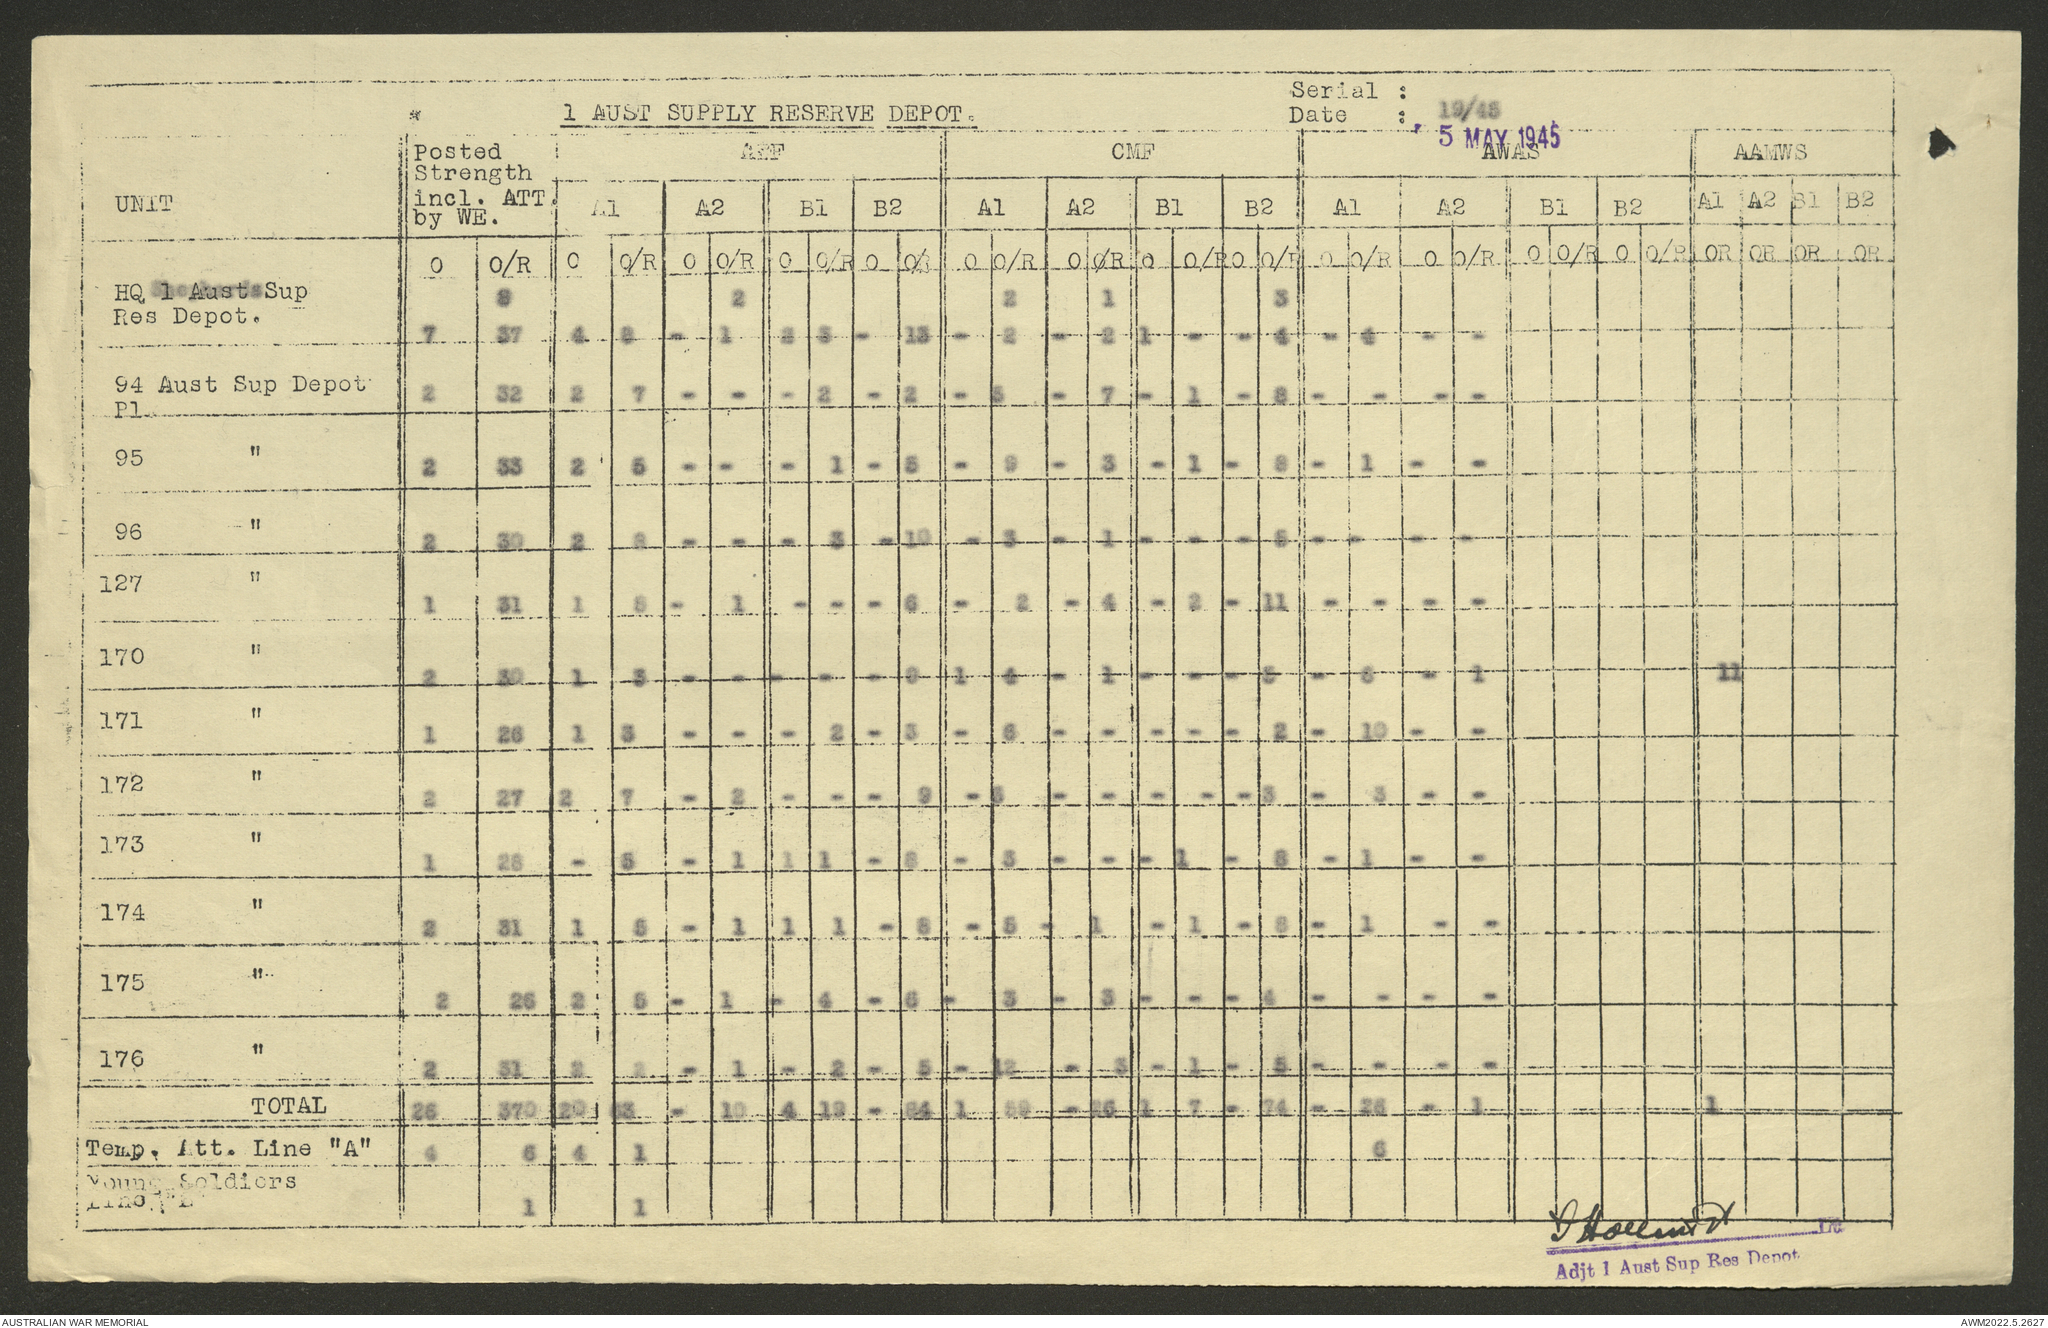 Serial : 19/45
1 AUST SUPPLY RESERVE DEPOT.
Date : 5 MAY 1945
UNIT Posted Strength incl. ATT. by WE. AIF CMF AWAS AAMWS
A1 A2 B1 B2 A1 A2 B1 B2 A1 A2 B1 B2 A1 A2 B1 B2
O O/R O O/R O O/R O O/R O O/R O O/R O O/R O O/R O O/R O O/R O O/R O O/R O O/R OR OR OR OR
HQ 1 Aust Sup 2 2 1 3
Res Depot. 7 37 4 8 - 1 3 - 13 - 2 - 2 1 - - 4 - 4 - -
94 Aust Sup Depot 2 32 2 7 - - - 2 - 2 - 5 - 7 - 1 - 8 - - - -
Pl
95 " 2 33 2 5 - - - 1 - 5 - 9 - 3 - 1 - 8 - 1 - -
96 " 2 30 2 8 - - - 3 - 10 - 3 - 1 - - - 5 - - - -
127 " 1 31 1 8 - 1 - - - 6 - 2 - 4 - 2 - 11 - - - -
170 " 2 30 1 3 - - - - - 9 1 4 - 1 - - - 5 - 6 - 1 11
171 " 1 26 1 3 - - - 2 - 3 - 6 - - - - - 2 - 10 - -
172 " 2 27 2 7 - 2 - - - 9 - 3 - - - - - 3 - 3 - -
173 " 1 28 - 5 - 1 1 1 - 8 - 3 - - - 1 - 8 - 1 - -
174 " 2 31 1 5 - 1 1 1 - 8 - 5 - 1 - 1 - 8 - 1 - -
175 " 2 26 2 5 - 1 - 4 - 6 - 3 - 3 - - - 4 - - - -
176 " 2 31 2 2 - 1 - 2 - 5 - 12 - 3 - 1 - 5 - - - -
TOTAL 26 370 20 63 - 10 4 19 - 84 1 59 - 26 1 7 - 74 - 26 - 1 1
Temp. Att. Line "A" 4 6 4 1 6
Young Soldiers
Line 1 1
Lt
Adjt 1 Aust Sup Res Depot
AUSTRALIAN WAR MEMORIAL
AWM2022.5.2627